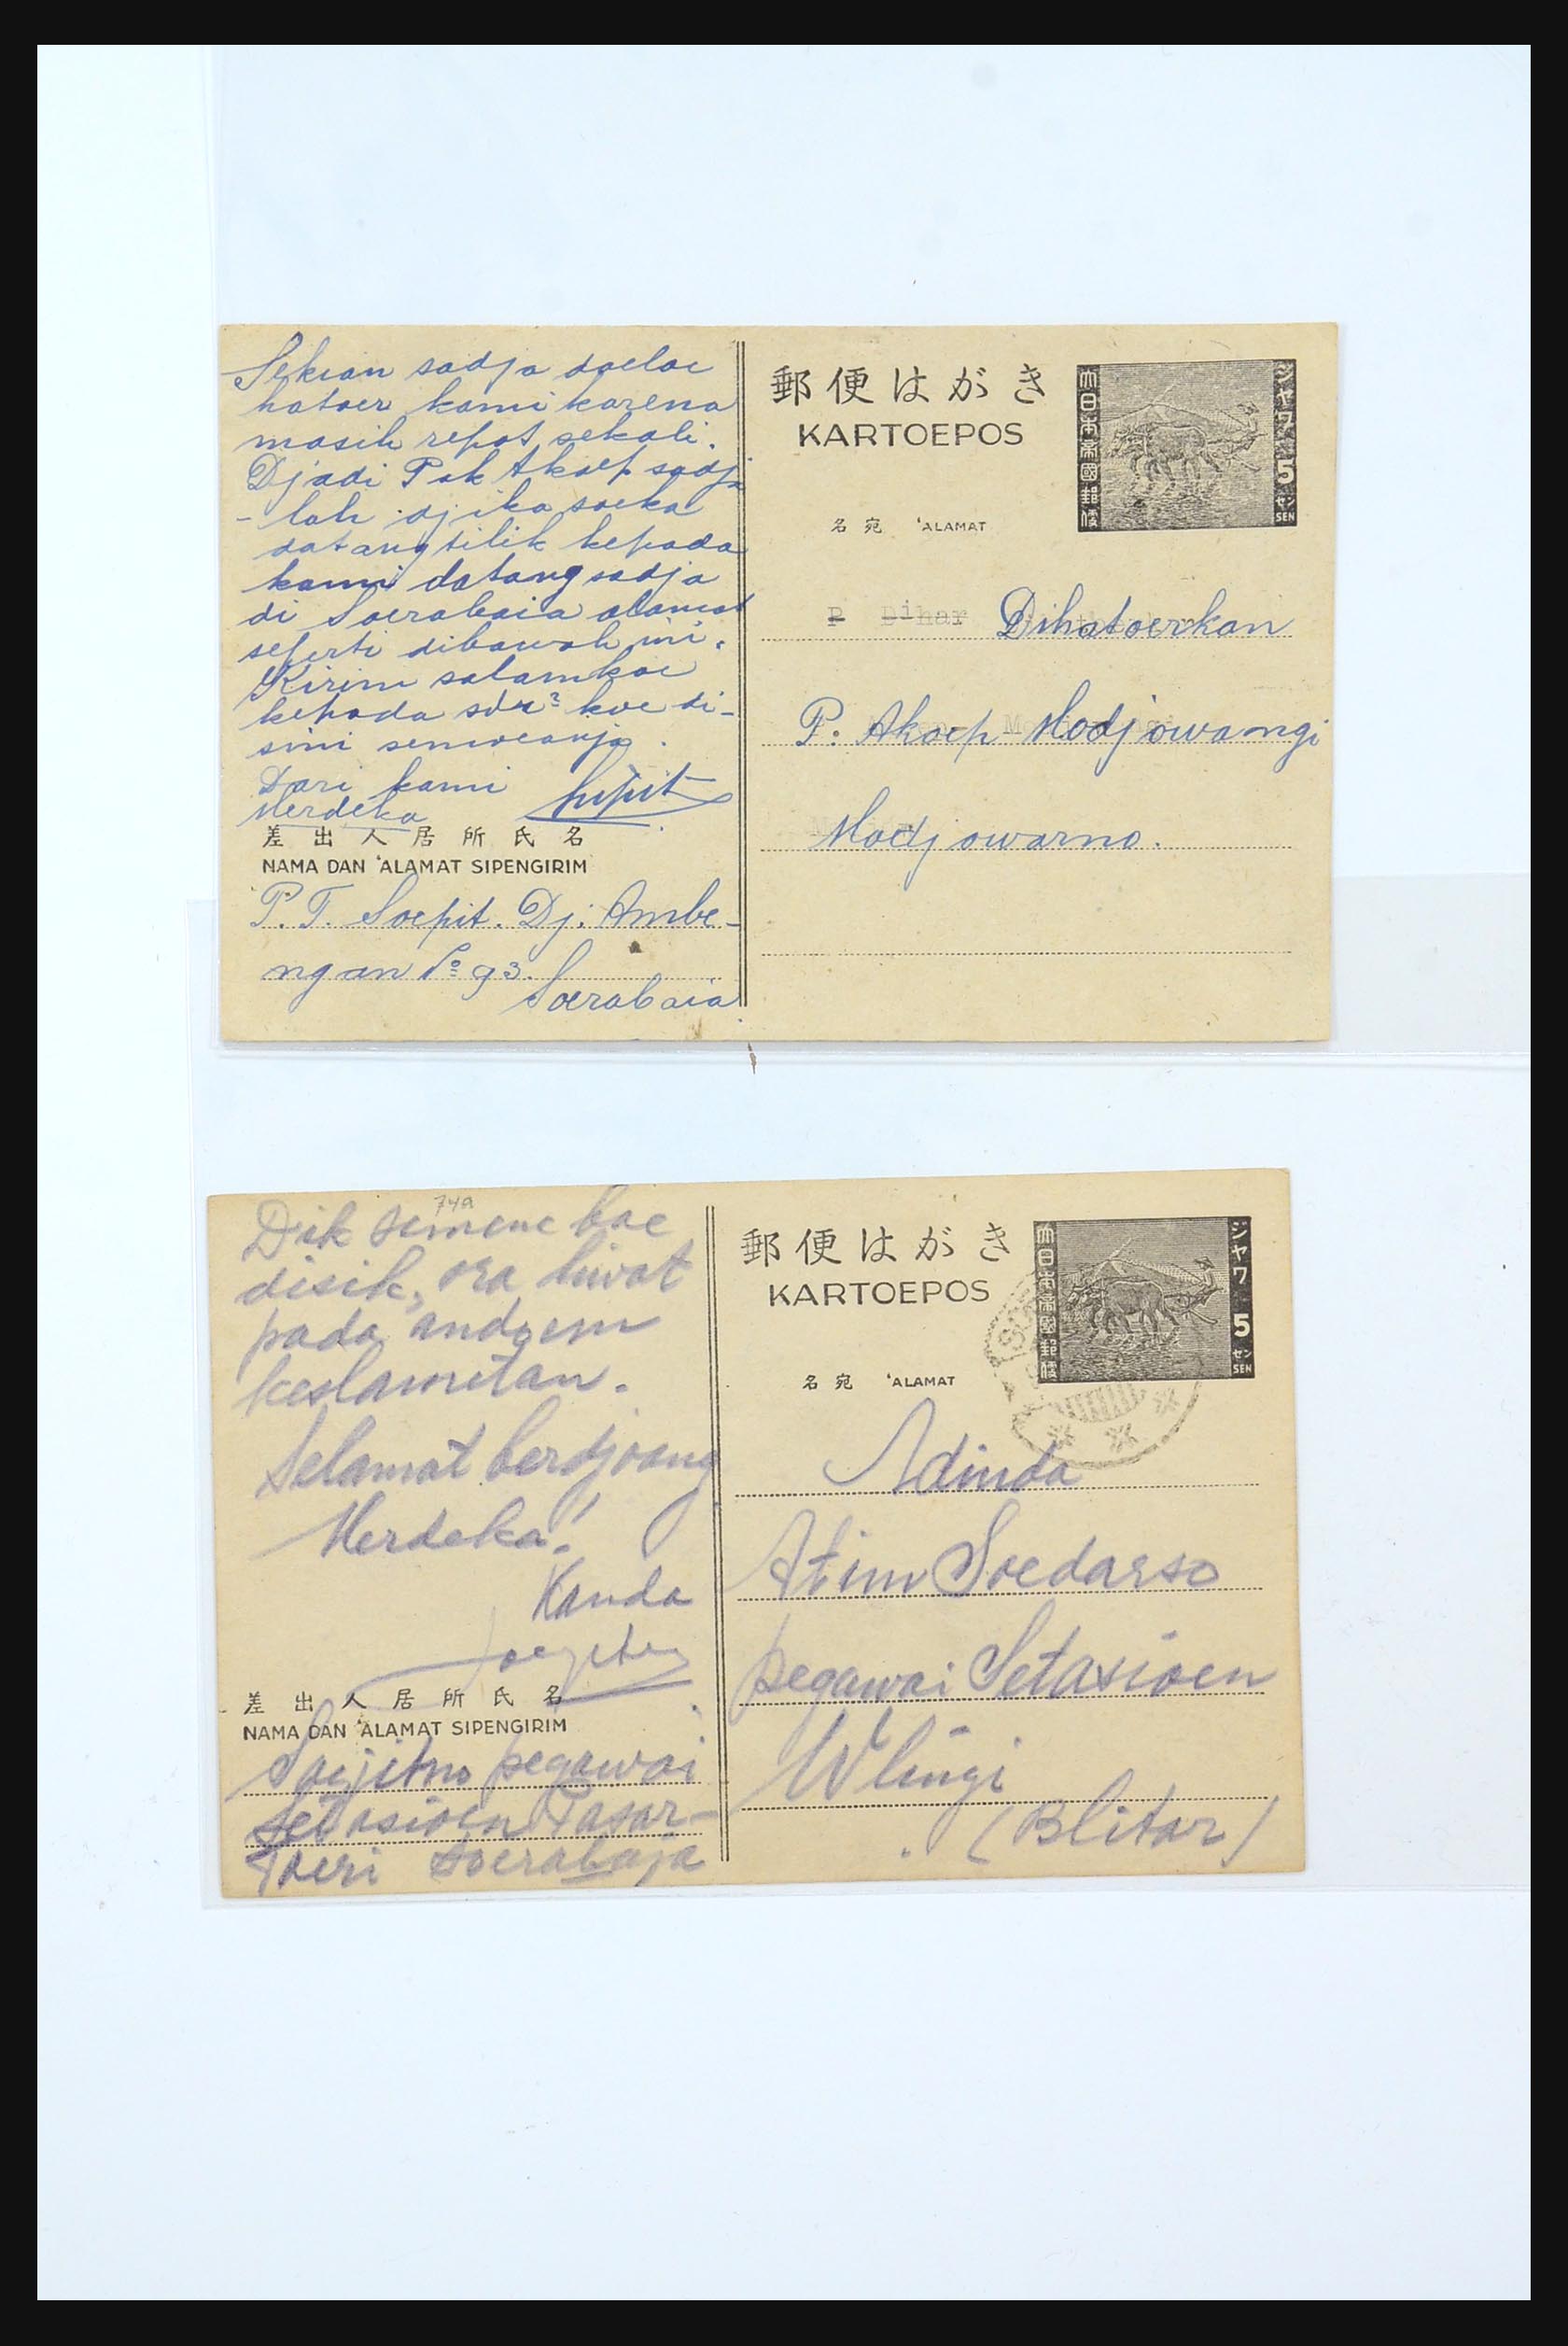 Sekian sadja doeloe
hatoer kami karena
masih repot sekali.
Djadi Pak Akoep sadja
- lah djika soeka
datang tilik kepada
kami datang sadja
di Soerabaia alamat
seperti dibawah ini.
Kirim salamkoe
kepada sdr² koe di-
sini semoeanja.
Dari kami
Merdeka
差出人居所氏名
NAMA DAN ʻALAMAT SIPENGIRIM
P. T. Soepit. Dj. Ambe-
ngan No 93.
Soerabaia.
郵便はがき
KARTOEPOS
大日本帝國郵便
ジャワ 5 セン SEN
名宛 ʻALAMAT
P Dihar Dihatoerkan
P. Akoep Modjowangi
Modjowarno.
74a
Dik semene bae
disik, ora liwat
pada andoem
keslametan.
Selamat berdjoang
Merdeka!
Kanda
差出人居所氏名
NAMA DAN ʻALAMAT SIPENGIRIM
Soejitno pegawai
Setasioen Pasar-
Toeri Soerabaja
郵便はがき
KARTOEPOS
大日本帝國郵便
ジャワ 5 セン SEN
名宛 ʻALAMAT
Adinda
Atim Soedarso
pegawai Setasioen
Wlingi
(Blitar)